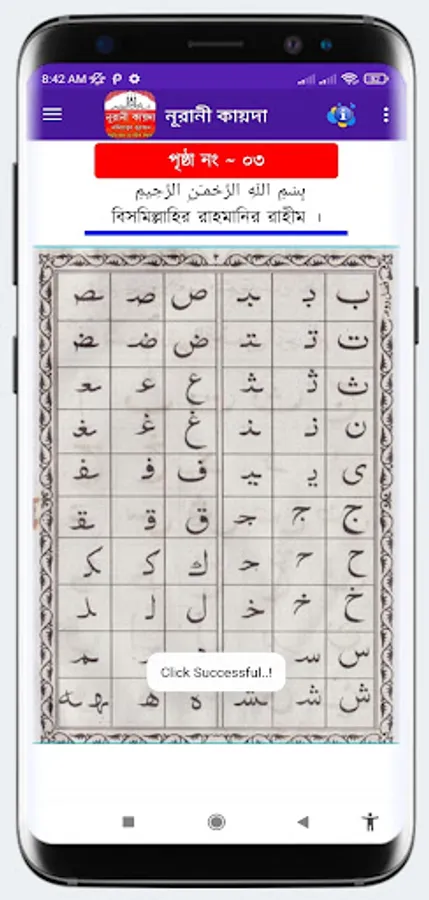 8:42 AM
নূরানী কায়দা
নূরানী কায়দা
পৃষ্ঠা নং ~ ০৩
بِسْمِ اللهِ الرَّحْمٰنِ الرَّحِيْمِ
বিসমিল্লাহির রাহমানির রাহীম ।
ب بـ ـبـ ص صـ ـصـ
ت تـ ـتـ ض ضـ ـضـ
ث ثـ ـثـ ع عـ ـعـ
ن نـ ـنـ غ غـ ـغـ
ى يـ ـيـ ف فـ ـفـ
ج جـ ـجـ ق قـ ـقـ
ح حـ ـحـ ك كـ ـكـ
خ خـ ـخـ ل لـ ـلـ
س سـ ـمـ
Click Successful..!
ش شـ ـشـ ه هـ ـهـ